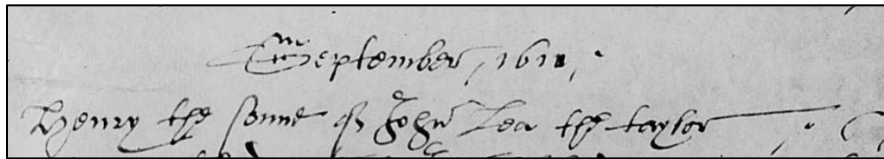 September, 1611,
Henry the sonne of John Lea the taylor